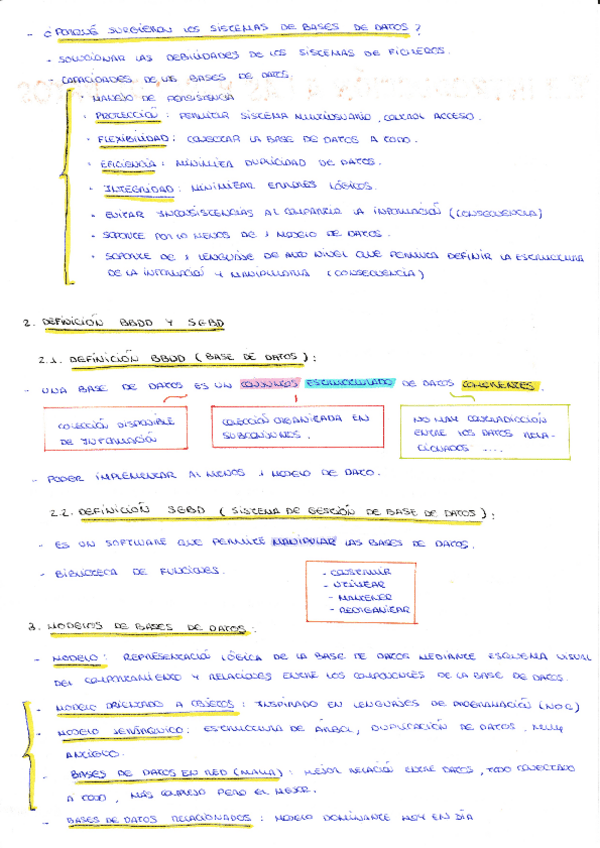 - ¿PORQUÉ SURGIERON LOS SISTEMAS DE BASES DE DATOS?
- SOLUCIONAR LAS DEBILIDADES DE LOS SISTEMAS DE FICHEROS.
- CAPACIDADES DE LAS BASES DE DATOS
· MANEJO DE PERSISTENCIA
· PROTECCIÓN: PERMITIR SISTEMA MULTIUSUARIO, CONTROL ACCESO.
· FLEXIBILIDAD: CONECTAR LA BASE DE DATOS A TODO.
· EFICIENCIA: MINIMIZA DUPLICIDAD DE DATOS.
· INTEGRIDAD: MINIMIZAR ERRORES LÓGICOS.
· EVITAR INCONSISTENCIAS AL COMPARTIR LA INFORMACIÓN (CONSECUENCIA)
· SOPORTE POR LO MENOS DE 1 MODELO DE DATOS.
· SOPORTE DE 1 LENGUAJE DE ALTO NIVEL QUE PERMITA DEFINIR LA ESTRUCTURA
DE LA INFORMACIÓN Y MANIPULARLA (CONSECUENCIA)
2. DEFINICIÓN BBDD Y SGBD
2.1. DEFINICIÓN BBDD (BASE DE DATOS):
- UNA BASE DE DATOS ES UN CONJUNTO ESTRUCTURADO DE DATOS COHERENTES.
COLECCIÓN DISPONIBLE
DE INFORMACIÓN
COLECCIÓN ORGANIZADA EN
SUBCONJUNTOS.
NO HAY CONTRADICCIÓN
ENTRE LOS DATOS RELA-
CIONADOS ....
- PODER IMPLEMENTAR AL MENOS 1 MODELO DE DATO.
2.2. DEFINICIÓN SGBD (SISTEMA DE GESTIÓN DE BASE DE DATOS):
- ES UN SOFTWARE QUE PERMITE MANIPULAR LAS BASES DE DATOS.
- BIBLIOTECA DE FUNCIONES.
- CONSTRUIR
- UTILIZAR
- MANTENER
- REORGANIZAR
3. MODELOS DE BASES DE DATOS:
- MODELO: REPRESENTACIÓN LÓGICA DE LA BASE DE DATOS MEDIANTE ESQUEMA VISUAL
DEL COMPORTAMIENTO Y RELACIONES ENTRE LOS COMPONENTES DE LA BASE DE DATOS.
- MODELO ORIENTADO A OBJETOS: INSPIRADO EN LENGUAJES DE PROGRAMACIÓN
- MODELO JERÁRQUICO: ESTRUCTURA DE ÁRBOL, DUPLICACIÓN DE DATOS. MUY
ANTIGUO.
- BASES DE DATOS EN RED (MALLA): MEJOR RELACIÓN ENTRE DATOS, TODO CONECTADO
A TODO, MÁS COMPLEJO PERO EL MEJOR.
- BASES DE DATOS RELACIONADOS: MODELO DOMINANTE HOY EN DÍA